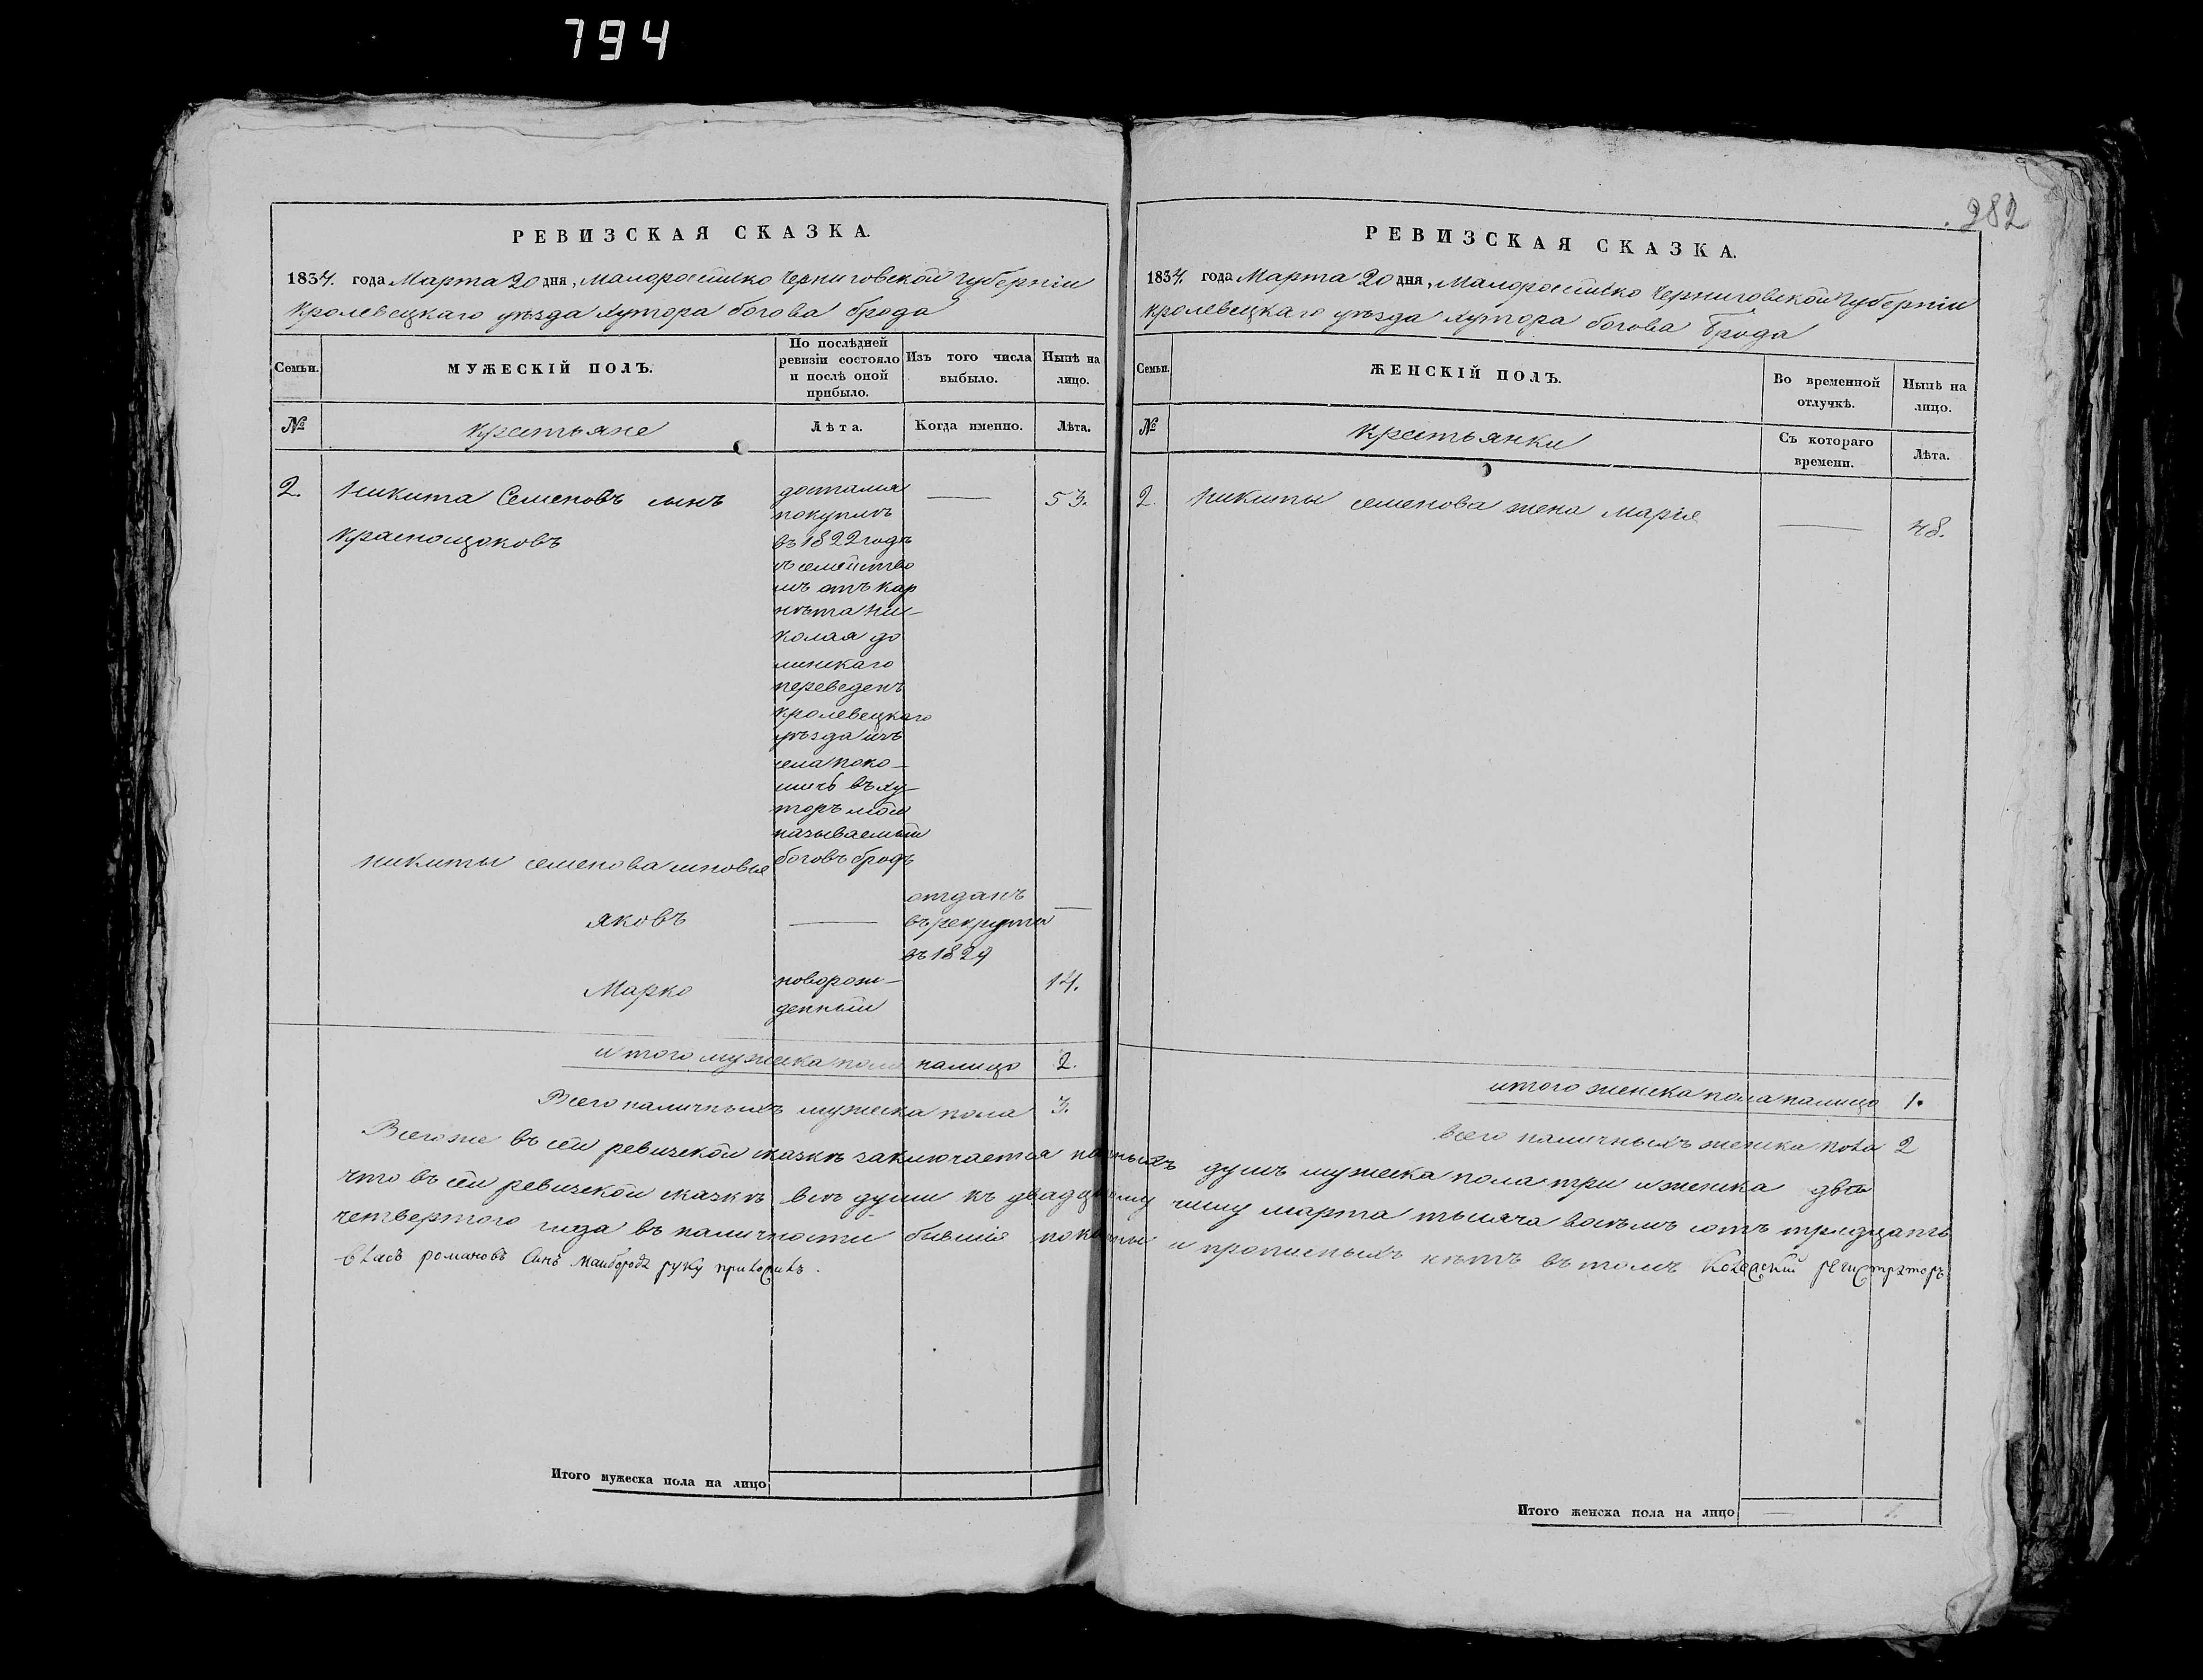 794
РЕВИЗСКАЯ СКАЗКА.
1834. года Марта 20 дня, Малоросійско Черниговской Губерніи
Кролевецкаго уѣзда Хутора богова брода
Семьи.
МУЖЕСКІЙ ПОЛЪ.
По послѣдней ревизіи состояло и послѣ оной прибыло.
Изъ того числа выбыло.
Нынѣ на лицо.
№
Крестьяне
Лѣта.
Когда именно.
Лѣта.
2.
Никита Семеновъ сынъ
Краснощоковъ
достался
покупкѣ
въ 1822 годѣ
съ семейство
мъ отъ кар
нѣта Ни-
колая до
линскаго
переведенъ
кролевецкаго
уѣзда изъ
села Поко-
шичь въ ху-
торъ мой
называемый
боговъ бродъ
—
53.
Никиты семенова сновья
Яковъ
—
отданъ
въ рекруты
въ 1829
—
Марко
новорож-
денный
14.
итого мужеска пола налицо 2.
Всего наличныхъ мужеска пола 3.
РЕВИЗСКАЯ СКАЗКА.
282
1834. года Марта 20 дня, Малоросійско Черниговской Губерніи
Кролевецкаго уѣзда Хутора богова Брода
Семьи.
ЖЕНСКІЙ ПОЛЪ.
Во временной отлучкѣ.
Нынѣ на лицо.
№
Крестьянки
Съ котораго времени.
Лѣта.
2.
Никиты семенова жена Марія
—
48.
итого женска пола налицо 1.
всего наличныхъ женска пола 2
Всего же въ сей ревизской сказкѣ заключается душъ мужеска пола три и женска двѣ
что въ сей ревизской сказкѣ всѣ души къ двадцатому числу марта тысяча восемъ сотъ тридцать
четвертого года въ наличности бывшія показаны и прописныхъ нѣтъ въ томъ Колежский регистраторъ
власъ романовъ Синъ Маиборода руку приложилъ.
Итого мужеска пола на лицо
Итого женска пола на лицо — 1.